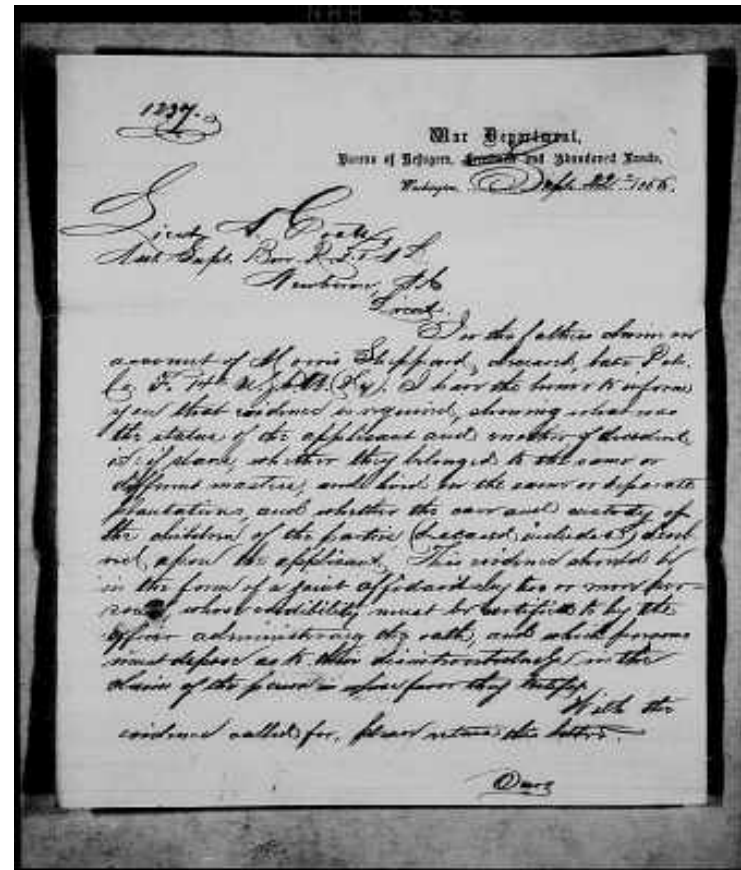 1237.
War Department,
Bureau of Refugees, Freedmen and Abandoned Lands,
Washington,
Lieut S.
Asst Supt. Bur. R. F. & A L
Newberne, N C
In the fathers claim on
account of Morris Sheppard, deceased, late Pvt.
Co. F. 14th U.S.C.A. (Hy). I have the honor to inform
you that evidence is required, showing what was
the status of the applicant and mother of decedent,
if slaves, whether they belonged to the same or
different masters, and lived on the same or separate
plantations, and whether the care and custody of
the children of the parties (deceased included) devol
ved upon the applicant. This evidence should be
in the form of a joint affidavit by two or more per-
sons, whose credibility must be certified to by the
officer administering the oath, and which persons
must depose as to their disinterestedness in the
claim of the person in whose favor they testify.
With the
evidence called for, please return this letter.
Over